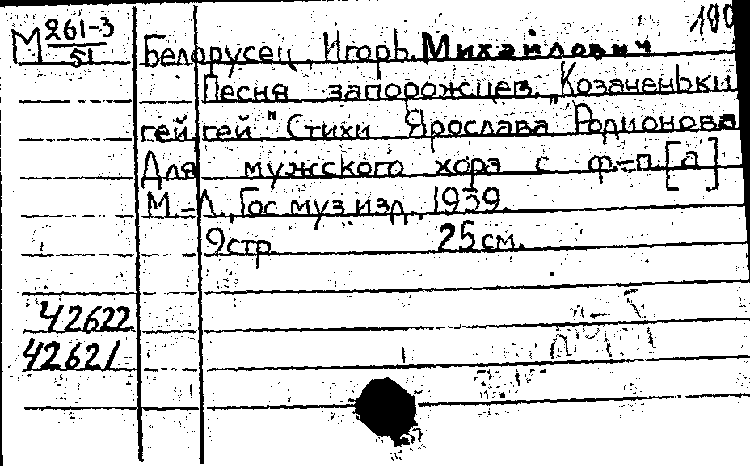 190
М 261-3/51
Белорусец, Игорь Михайлович
Песня запорожцев. "Козаченьки
гей, гей" Стихи Ярослава Родионова
Для мужского хора с ф.-п. [а]
М.-Л., Гос муз изд., 1939.
9 стр. 25 см.
42622
42621